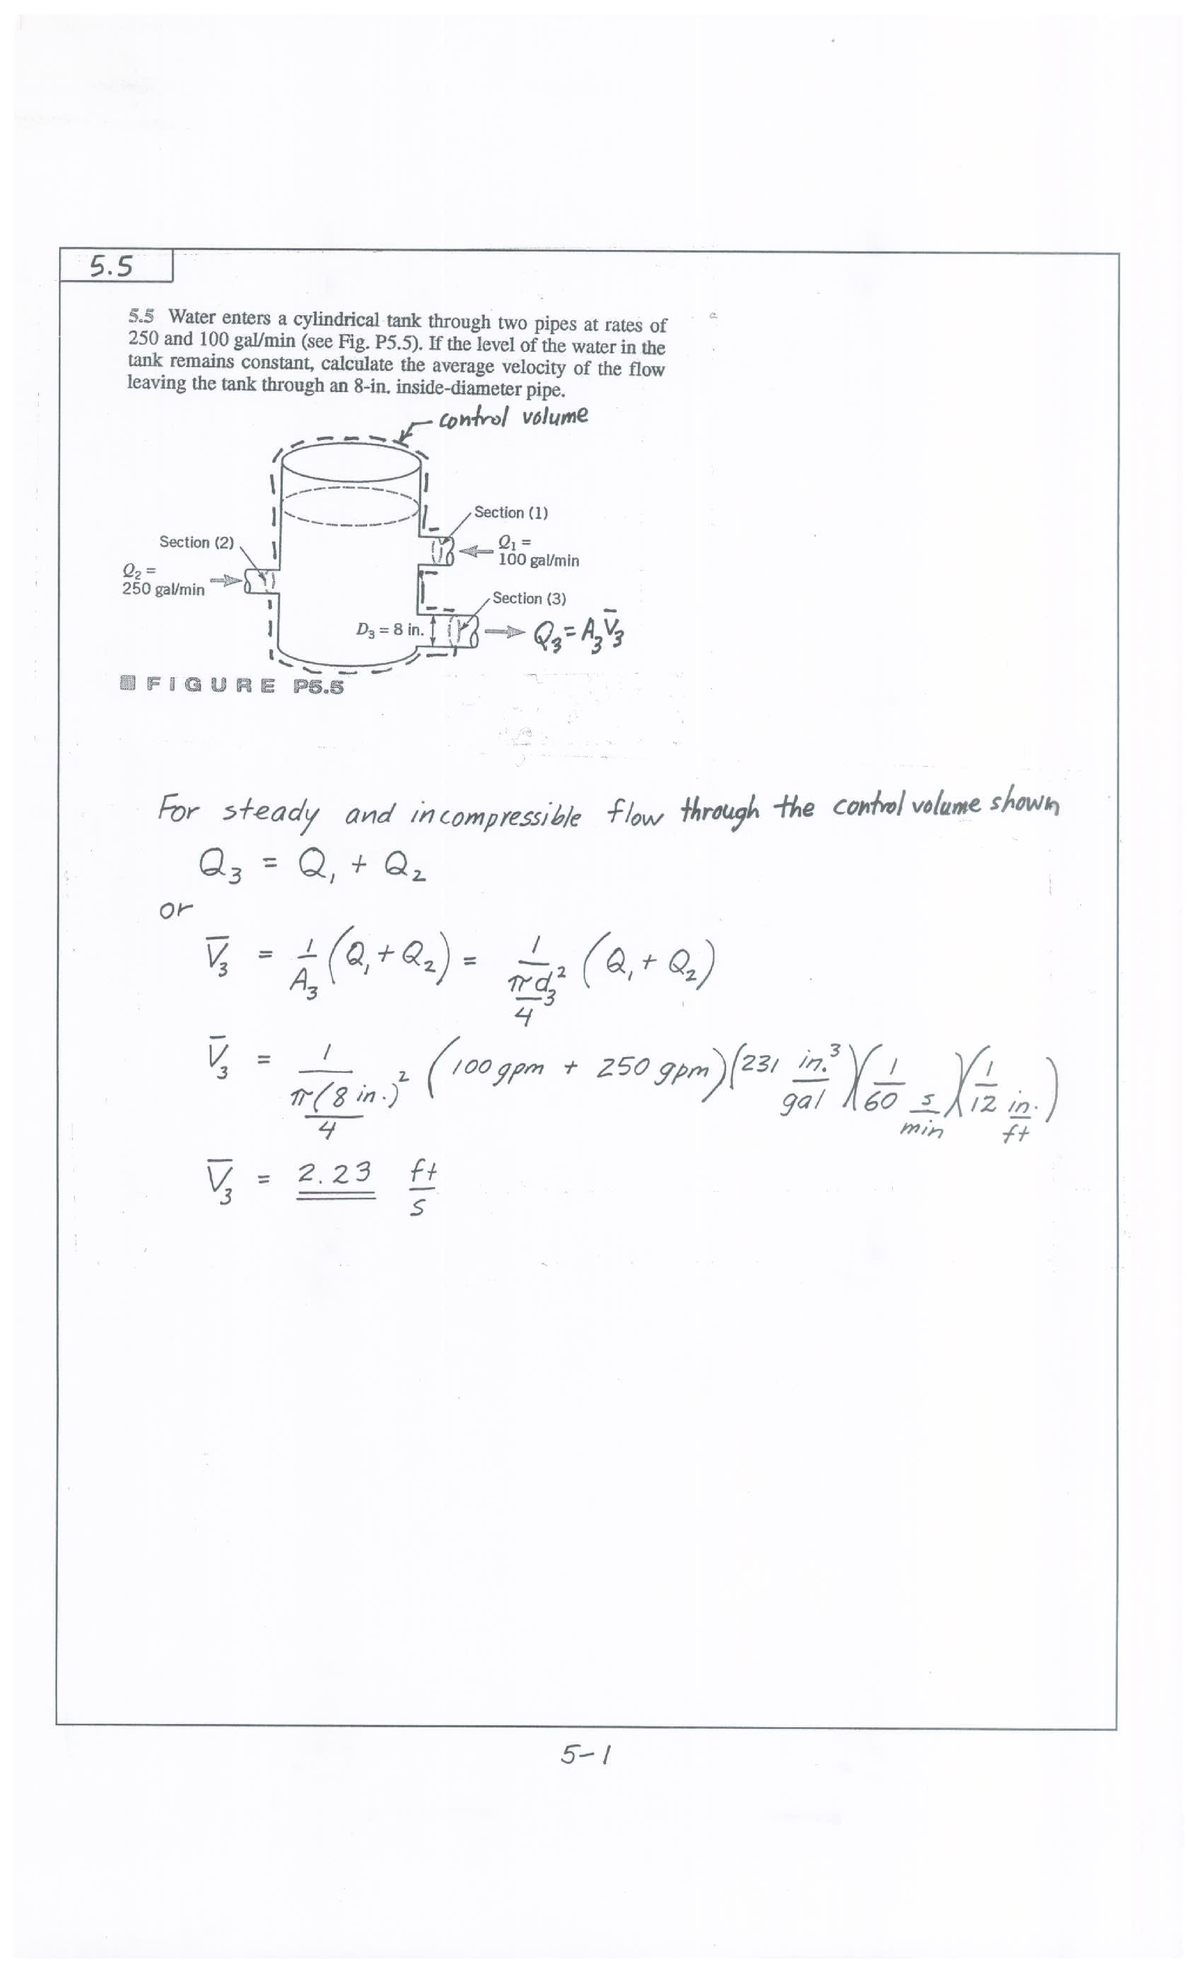 5.5
5.5 Water enters a cylindrical tank through two pipes at rates of
250 and 100 gal/min (see Fig. P5.5). If the level of the water in the
tank remains constant, calculate the average velocity of the flow
leaving the tank through an 8-in. inside-diameter pipe.
control volume
Section (1)
Section (2)
Q₁ =
100 gal/min
Q₂ =
250 gal/min
Section (3)
D₃ = 8 in.
Q₃ = A₃V̅₃
FIGURE P5.5
For steady and incompressible flow through the control volume shown
Q₃ = Q₁ + Q₂
or
V̅₃ = 1/A₃ (Q₁ + Q₂) = 1/(πd₃²/4) (Q₁ + Q₂)
V̅₃ = 1/(π(8 in.)²/4) (100 gpm + 250 gpm)(231 in.³/gal)(1/(60 s/min))(1/(12 in./ft))
V̅₃ = 2.23 ft/s
5-1